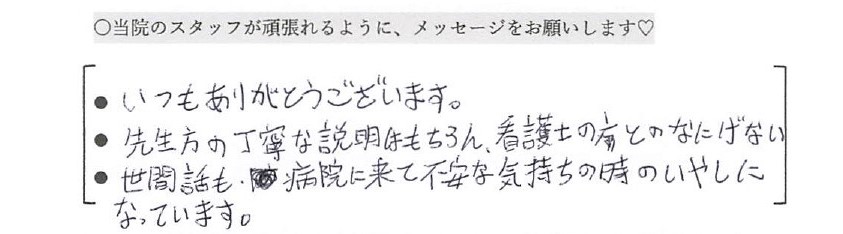 ○当院のスタッフが頑張れるように、メッセージをお願いします♡
● いつもありがとうございます。
● 先生方の丁寧な説明はもちろん、看護士の方とのなにげない
●世間話も、病院に来て不安な気持ちの時のいやしに
なっています。